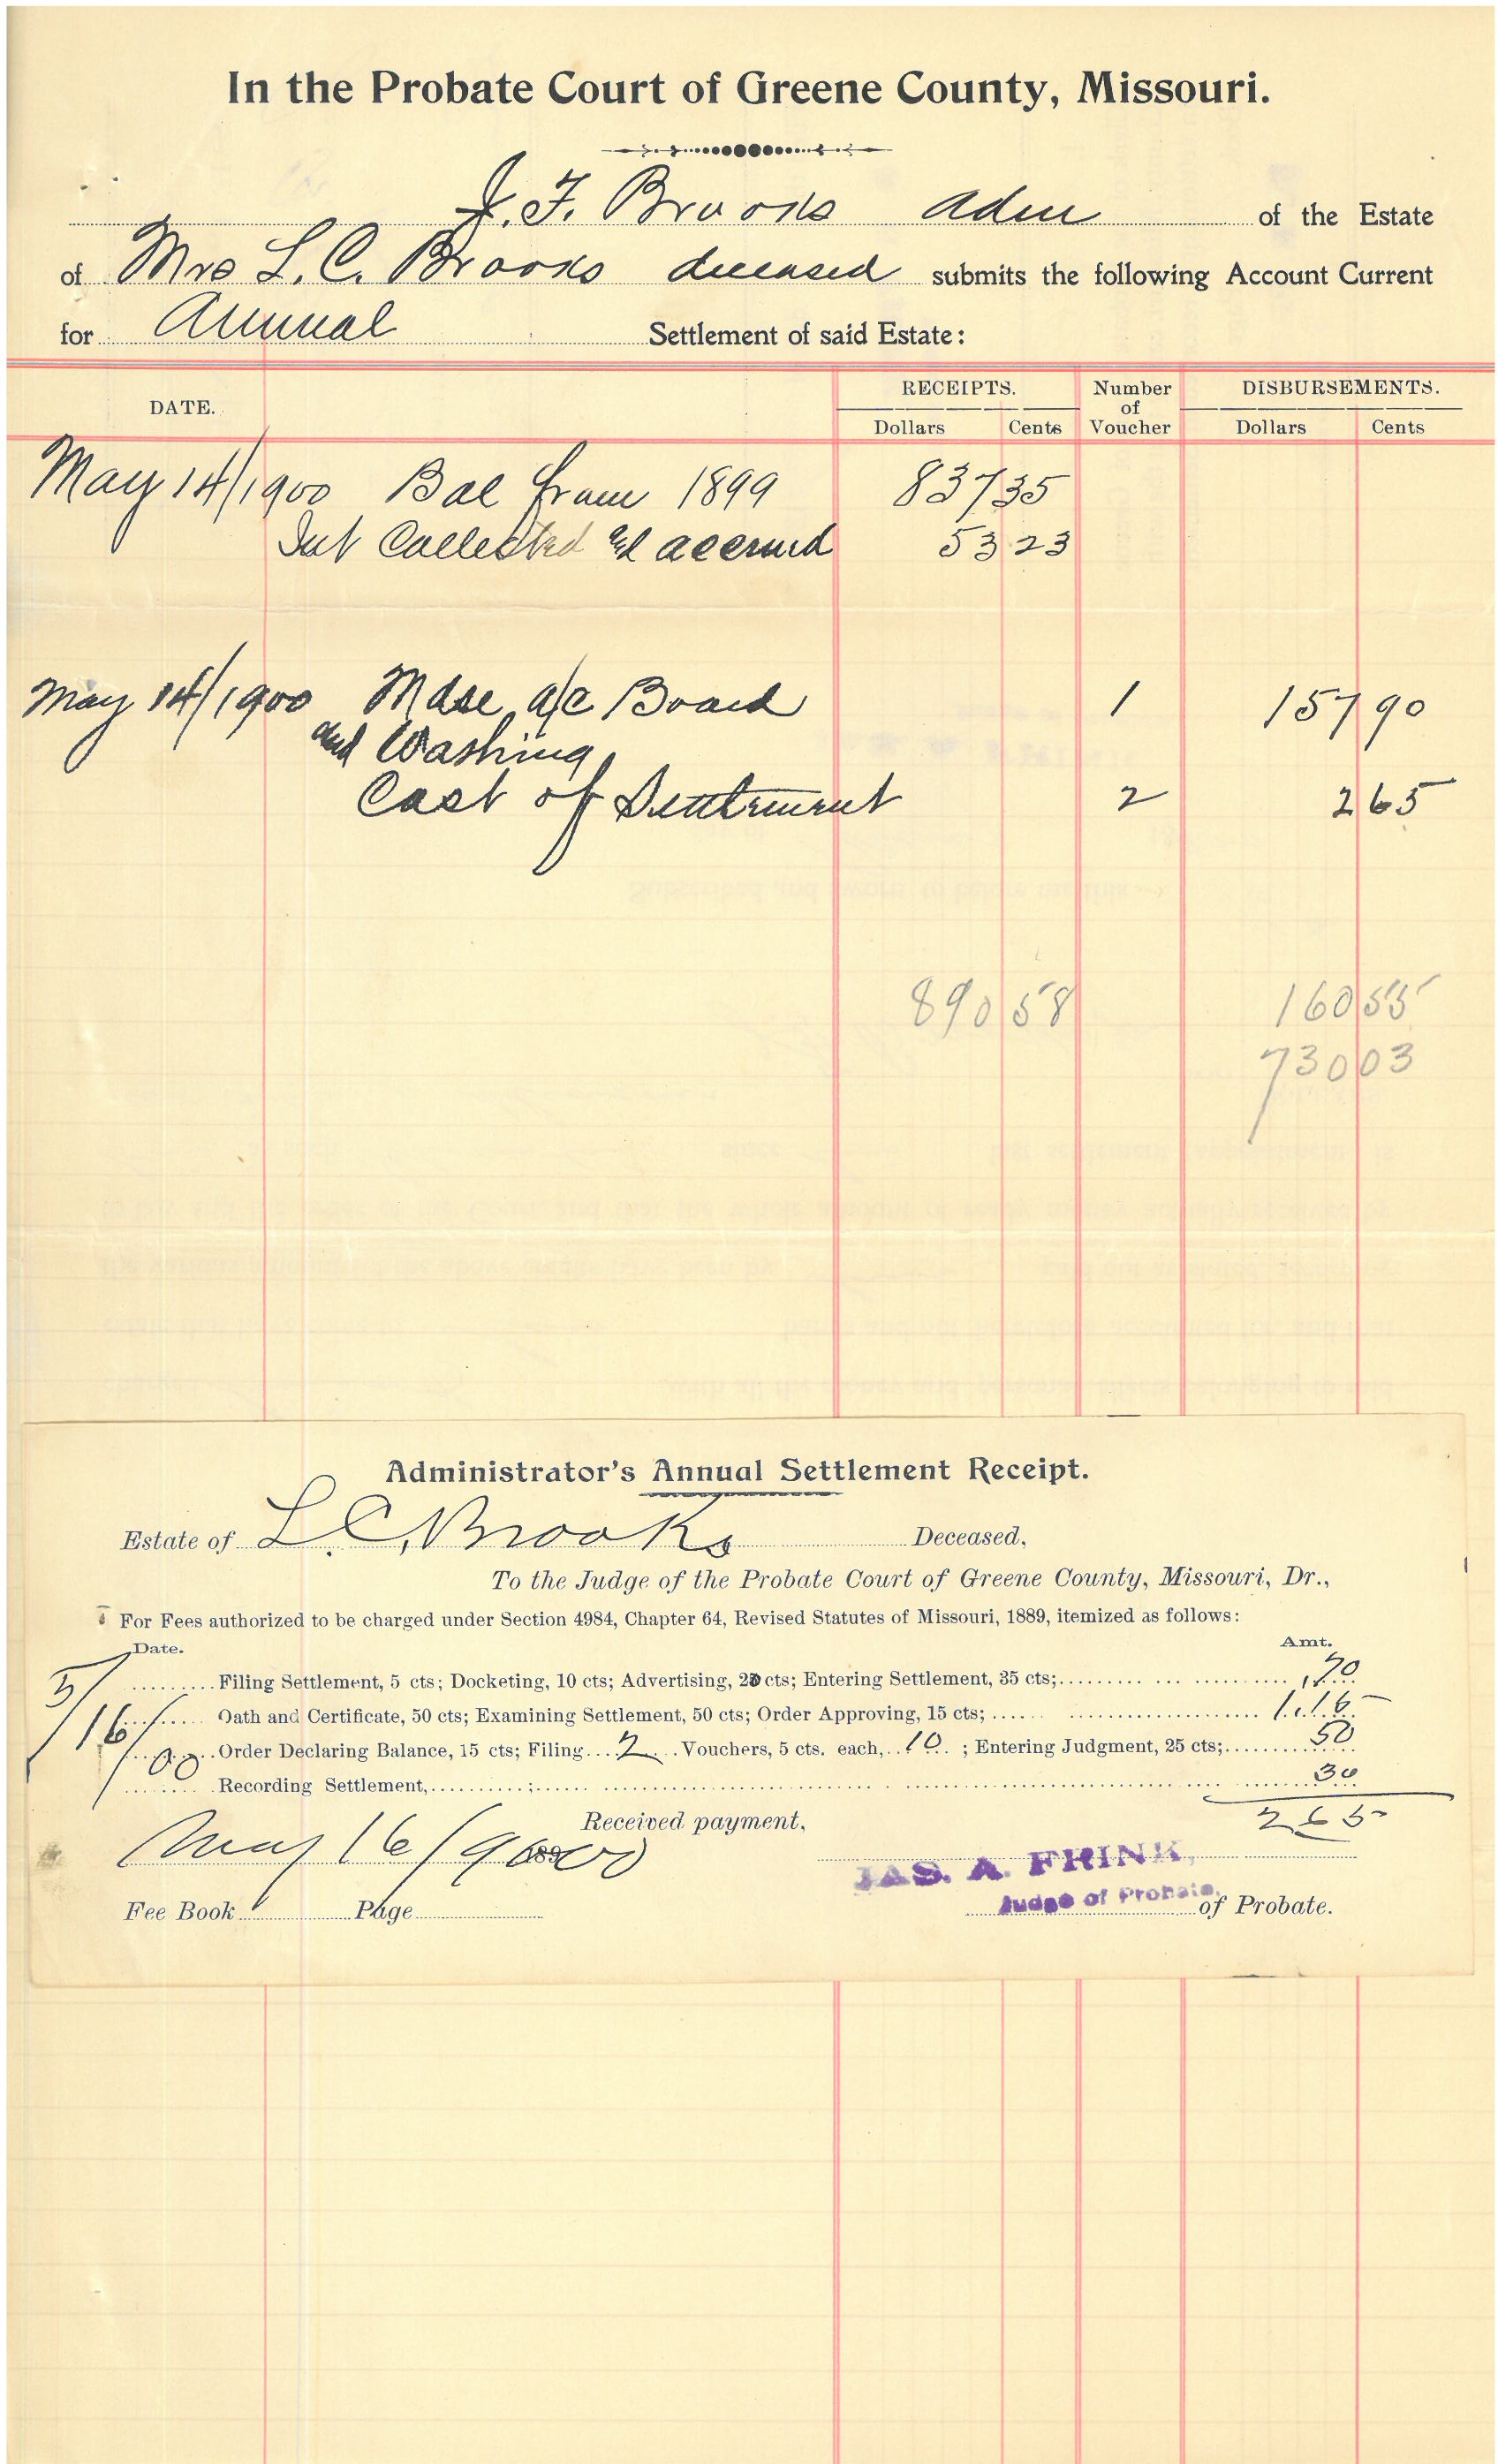 In the Probate Court of Greene County, Missouri.
J. F. Brooks Adm of the Estate
of Mrs L. C. Brooks deceased submits the following Account Current
for Annual Settlement of said Estate:
DATE. RECEIPTS. Number of Voucher DISBURSEMENTS.
Dollars Cents Dollars Cents
May 14/1900 Bal from 1899 837 35
Int Collected & accrued 53 23
May 14/1900 Mdse a/c Board 1 157 90
and Washing
Cost of Settlement 2 2 65
890 58 160 55
730 03
Administrator's Annual Settlement Receipt.
Estate of L. C. Brooks Deceased,
To the Judge of the Probate Court of Greene County, Missouri, Dr.,
For Fees authorized to be charged under Section 4984, Chapter 64, Revised Statutes of Missouri, 1889, itemized as follows:
Date. Amt.
5/ Filing Settlement, 5 cts; Docketing, 10 cts; Advertising, 20 cts; Entering Settlement, 35 cts; 70
16/ Oath and Certificate, 50 cts; Examining Settlement, 50 cts; Order Approving, 15 cts; 1.15
00 Order Declaring Balance, 15 cts; Filing 2 Vouchers, 5 cts. each, 10 ; Entering Judgment, 25 cts; 50
Recording Settlement, 30
Received payment, 2 65
May 16/1900
JAS. A. FRINK,
Judge of Probate,
Fee Book Page of Probate.